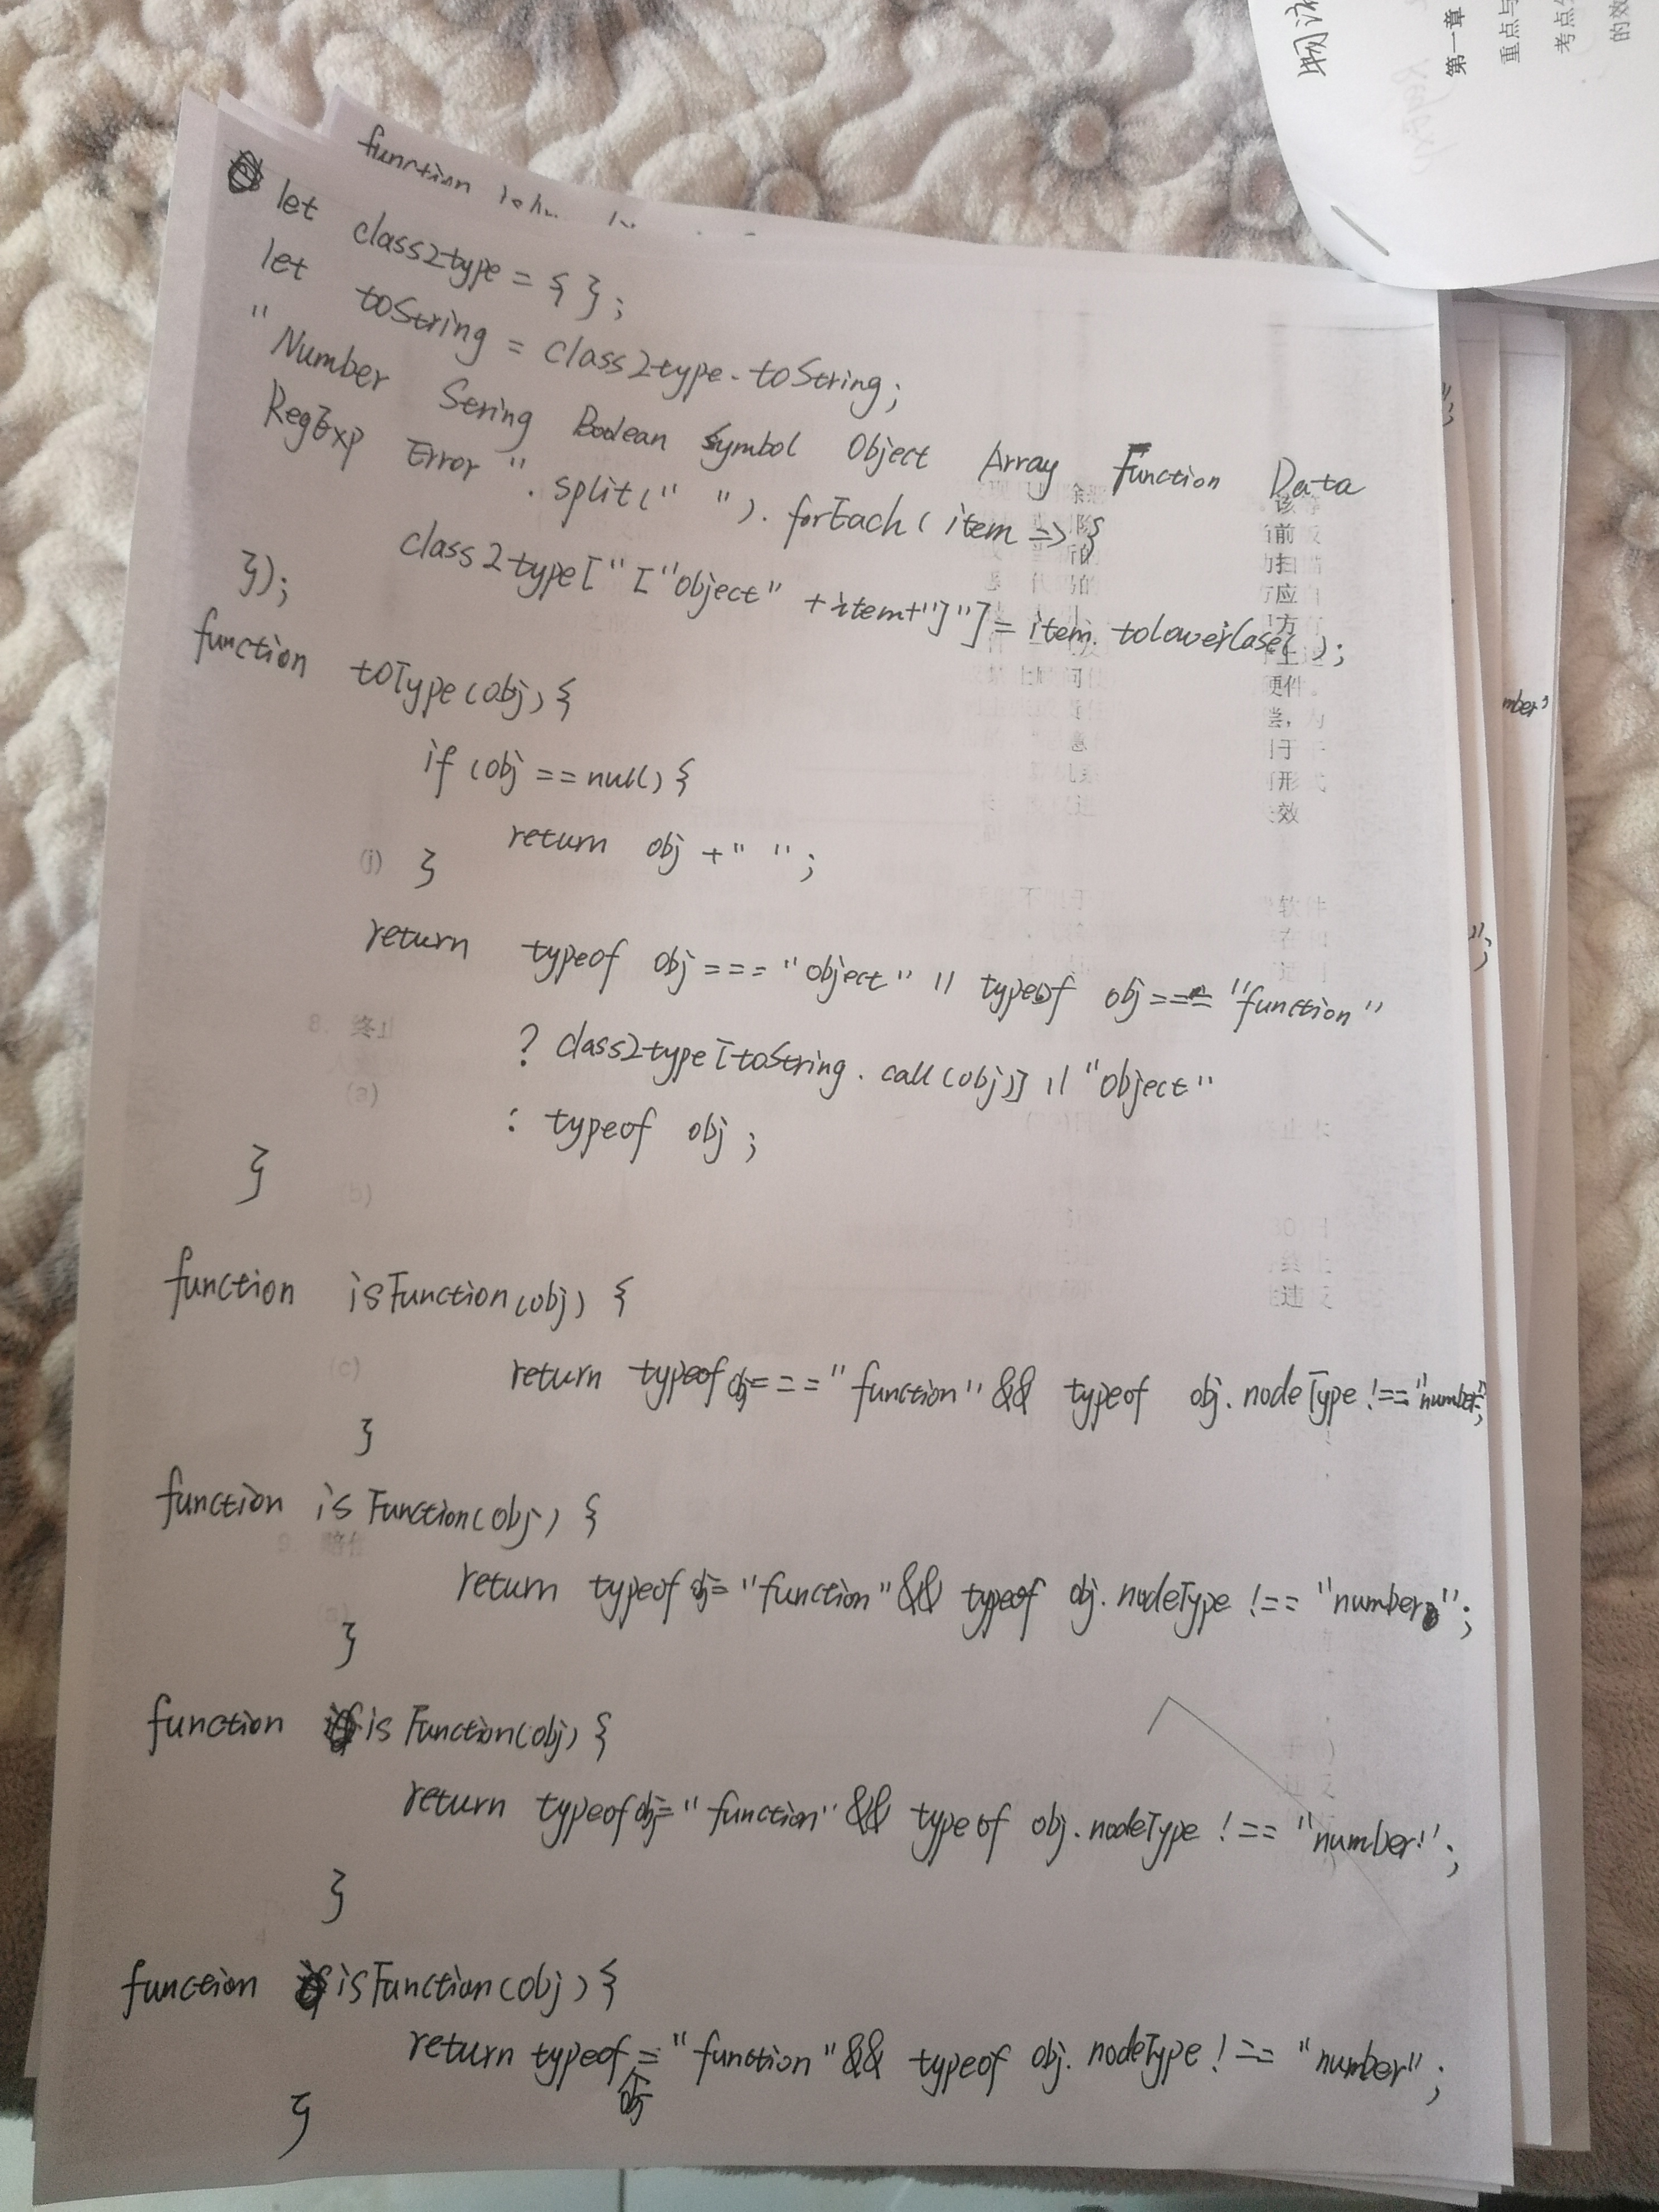 function
let class2type = { };
let toString = class2type.toString;
" Number Sering Boolean Symbol Object Array Function Data
RegExp Error ".split(" ").forEach(item => {
class2type["["object" +item+"]"]= item.toLowerCase( );
});
function toType(obj) {
if (obj == null) {
return obj +" ";
}
return typeof obj === "object" || typeof obj === "function"
? class2type[toString.call(obj)] || "object"
: typeof obj ;
}
function isFunction(obj) {
return typeof obj === "function" && typeof obj.nodeType !== "number";
}
function isFunction(obj) {
return typeof obj = "function" && typeof obj.nodeType !== "number";
}
function isFunction(obj) {
return typeof obj = "function" && typeof obj.nodeType !== "number";
}
function isFunction(obj) {
return typeof obj = "function" && typeof obj.nodeType !== "number";
}
第一章
重点与
考点
的效
mber"
(i)
8. 终止
(a)
(b)
(c)